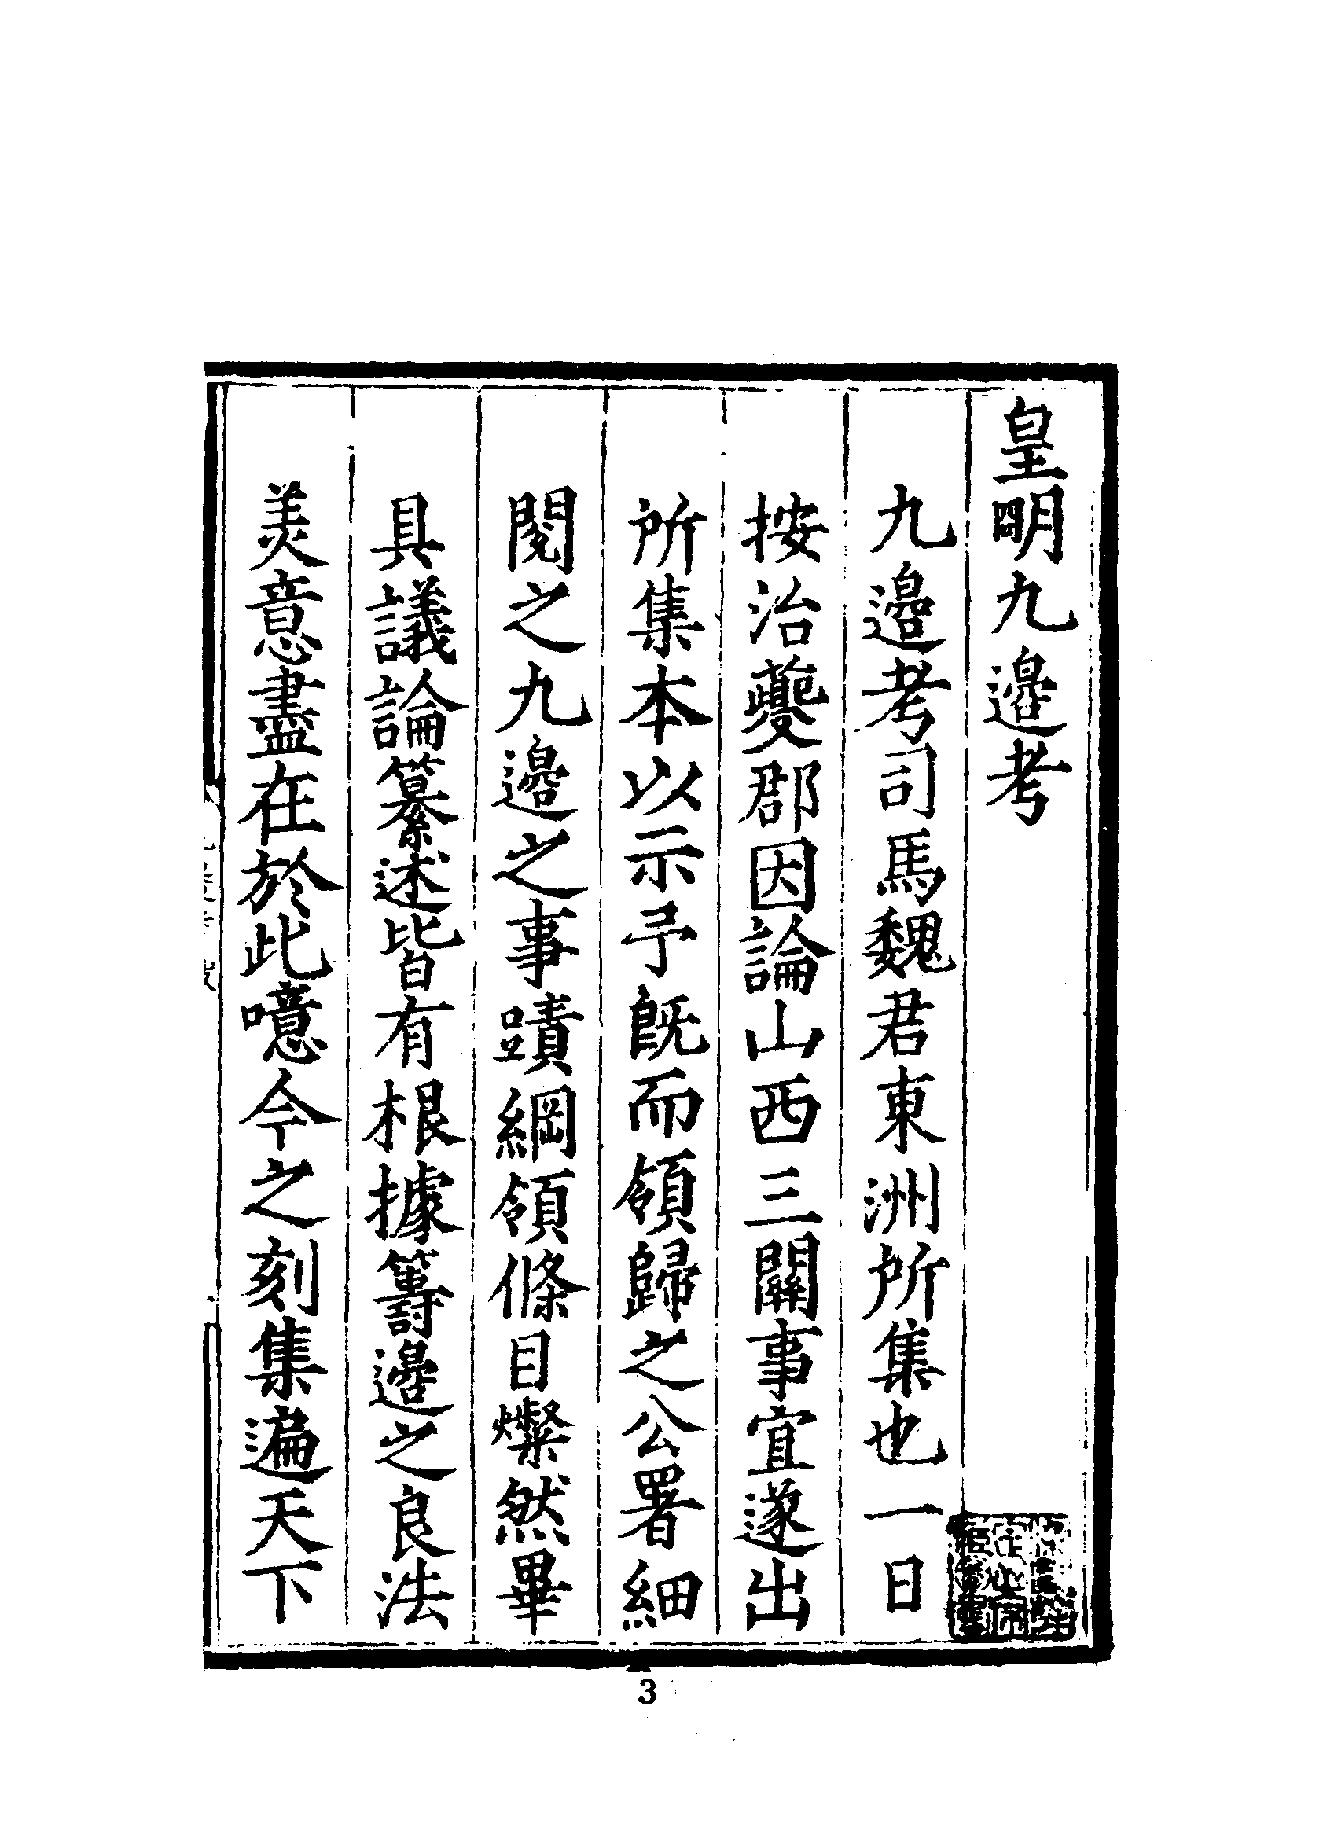 皇明九邊考
九邊考司馬魏君東洲所集也一日
按治夔郡因論山西三關事宜遂出
所集本以示予旣而領歸之公署細
閱之九邊之事蹟綱領條目燦然畢
具議論纂述皆有根據籌邊之良法
美意盡在於此噫今之刻集遍天下
3